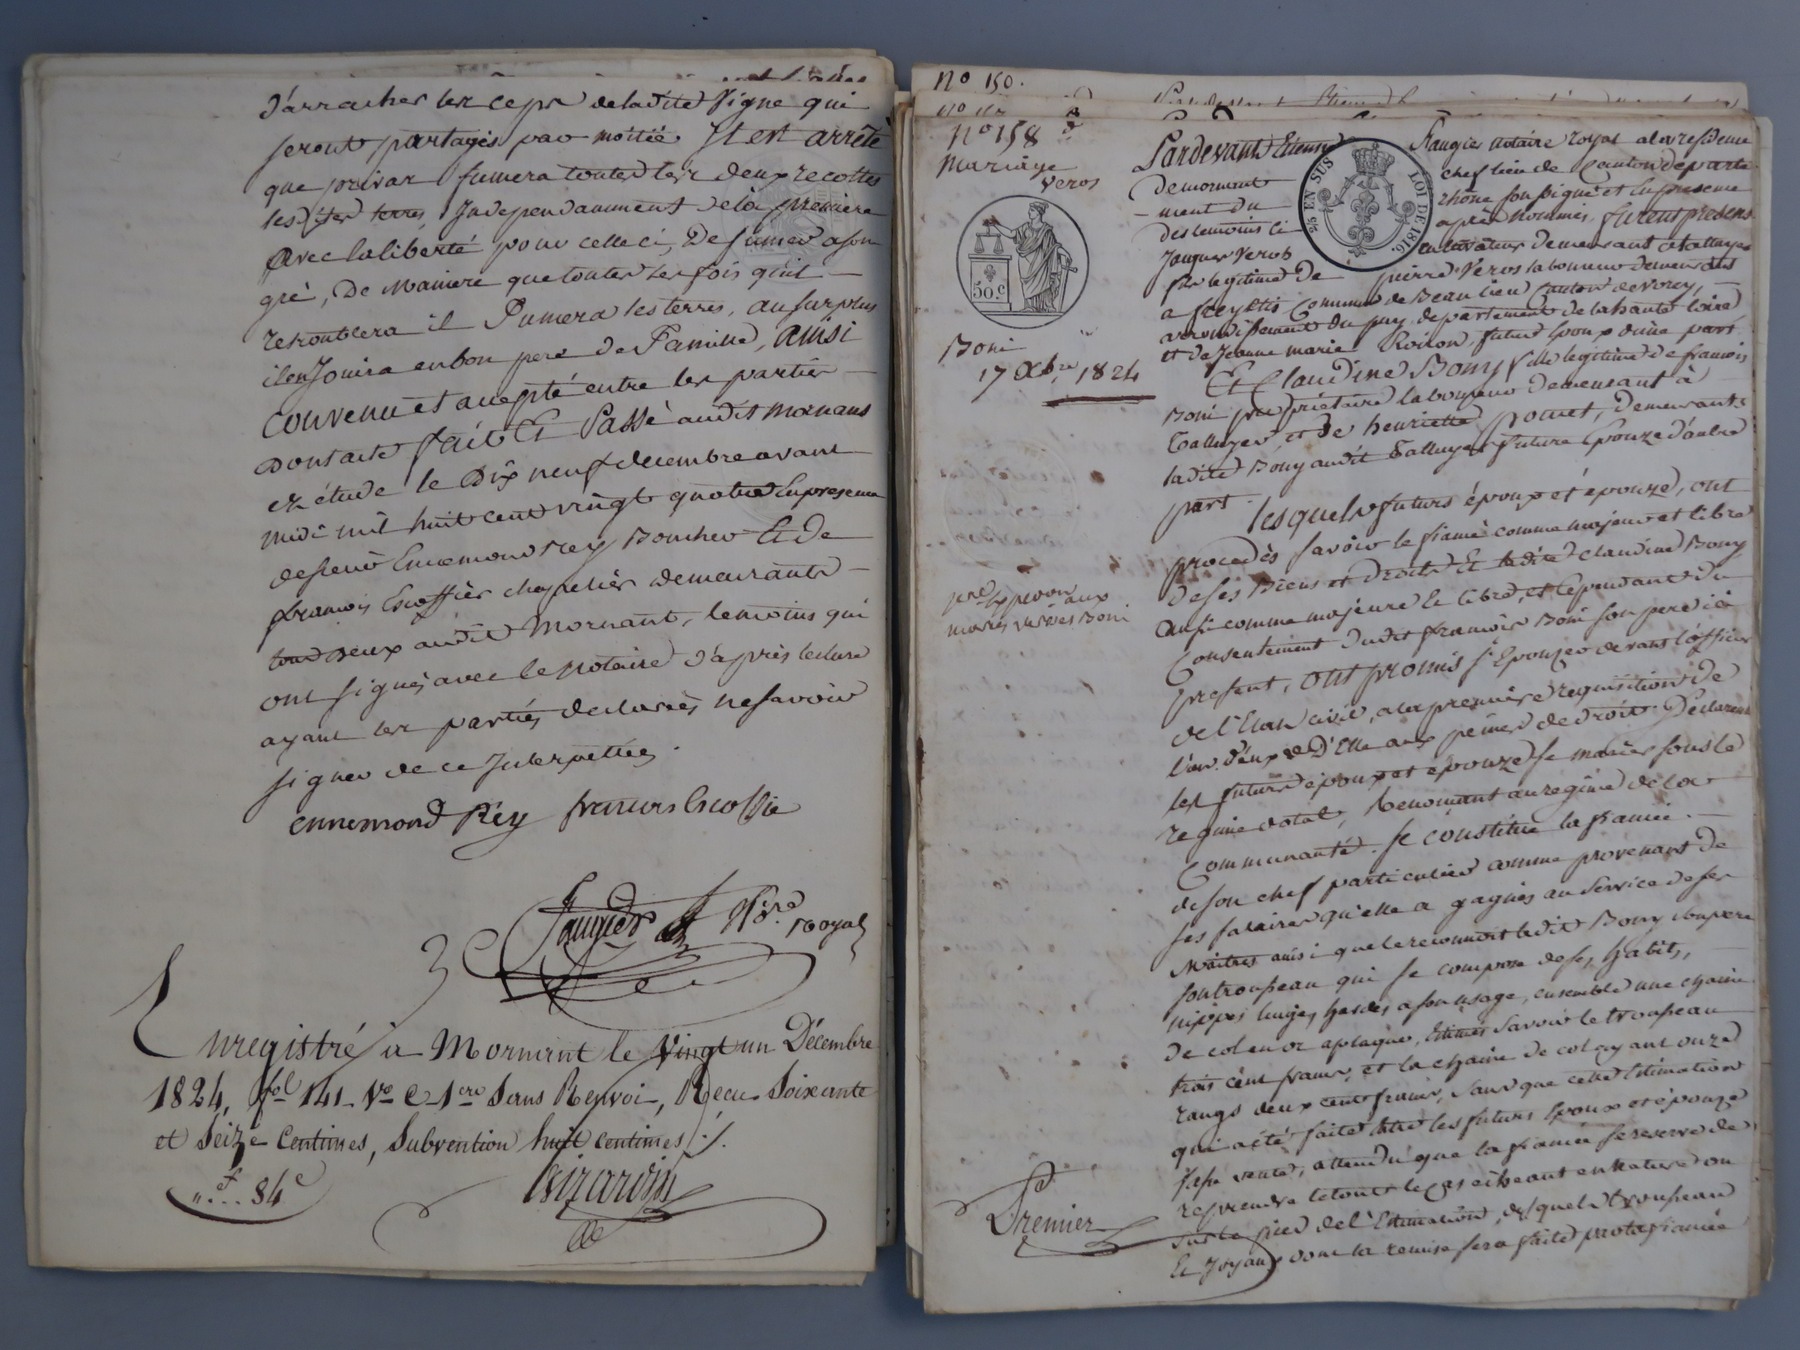 d'arracher les ceps de ladite Vigne qui
seront partagés par moitié Il est arrêté
que privar fumera toutes les deux recoltes
les terres, Independamment de la premiere
avec la liberté pour celle ci, De fumer a son
gré, De Maniere que toutes les fois qu'il
retroublera il fumera les terres, au surplus
il en Jouira en bon pere de Famille, ainsi
convenu et accepté entre les parties
Dont acte fait Et Passé audit Mornant
en étude le Dix neuf decembre avant
midi mil huit cent vingt quatre En presence
de sieur Ennemond Rey Boucher Et de
francois Escoffier chapelier demeurants
tous deux audit Mornant, temoins qui
ont signés avec le notaire d'après lecture
ayant les parties declarées ne savoir
signer de ce Interpellées.
ennemond Réy francois Escoffie
Faugier Nre. Royal
Enregistré à Mornant le Vingt un Décembre
1824, fol 141 Vo C 1ere Sans Renvoi, Recu Soixante
et Seize Centimes, Subvention huit centimes ./.
".... 84c
No 150.
No 158
Mariage
Veros
50.c
Boni
17 Xbre 1824
mariés Veros Boni
Premier
25 EN SUS
LOI DE 1816.
Pardevant Etienne Faugier notaire royal a la residence
de mornant chef lieu de Canton departe
-ment du rhône soussigné et En presence
des temoins ci après nommés, furent présens
Jacques Veros cultivateur demeurant a talluyer
fils legitime de pierre Veros laboureur demeurant
a freyssis Commune de Beaulieu Canton de Vorey,
arrondissement du puy departement de la haute loire
et de Jeanne marie Roiron, futur Epoux d'une part
Et Claudine Bony fille legitime de francois
Boni propriétaire laboureur demeurant à
Talluyer et de henriette poncet, demeurante
ladite Bony audit Talluyer future Epouze d'autre
part. lesquels futurs époux et épouze, ont
procedés savoir le fiancé comme majeur et libre
de ses Biens et droits Et ladite Claudine Bony
aussi comme majeure Et libre, et Cependant du
Consentement dudit francois Boni son pere ici
présent, ont promis s'Epouzer devant l'officier
de l'Etat civil, a la première requisition de
l'un d'eux ou D'Elle aux peines de droit. Déclarent
les futurs époux et épouze se marier sous le
regime dotal, Renoncant au regime de la
Communauté. Se constitue la fiancée.
de son chef particulier comme provenant de
ses salaires qu'elle a gagnés au service de ses
Maitres ainsi que le reconnoit ledit Bony son pere
son trousseau qui se compose de ses habits,
nippes linges, hardes a son usage, ensemble une chaine
de col en or a plaque, Estimés Savoir le trousseau
trois cent francs, et la chaine de col ayant onze
rangs deux cent francs, sans que cette Estimation
qui a été faite entre les futurs Epoux et épouze
fasse vente, attendu que la fiancée se reserve de
reprendre le tout le cas échéant en Nature ou
sur le pied de l'Estimation, desquels trousseau
Et Joyaux dont la remise sera faite par la fiancée